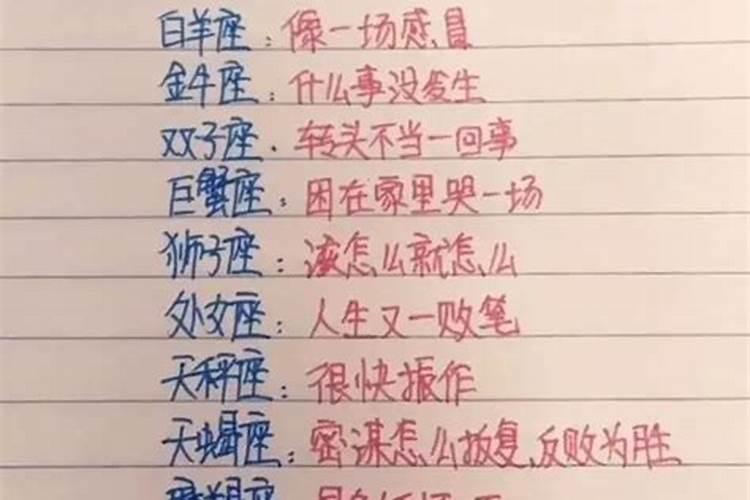 白羊座：像一场感冒
金牛座：什么事没发生
双子座．转头不当一回事
巨蟹座：困在家里哭一场
狮子座：该怎么就怎么
处女座：人生又一败笔
天秤座：很快振作
天蝎座：密谋怎么报复,反败为胜